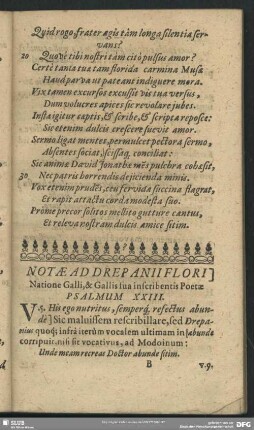 Quid rogo, frater agis tàm longa silentia ser-
vans?
20 Quove tibi nostri tàm citò pulsus amor?
Certè tanta tua tam florida carmina Musæ
Haud parva ut pateant indiguere mora.
Vix tameu excursos excussit vis tua versus,
Dum volucres apices sic revolare jubes.
Insta igitur cœptis, & scribe, & scripta reposce:
Sic etenim dulcis crescere suevit amor.
Sermo ligat mentes, permulcet pectora sermo,
Absentes sociat, scissáq; conciliat:
Sic animæ David Jonathæ mens pulchra cohæsit,
30 Nec patrii horrendis dejicienda minis.
Vox etenim prudens, ceu fervida succina flagrat,
Et rapit attactu corda modesta suo.
Prome precor solitos mellito gutture cantus,
Et releva nostram dulcis amice sitim.
NOTÆ AD DREPANII FLORI]
Natione Galli, & Gallis sua inscribentis Poetæ
PSALMUM XXIII.
V5. His ego nutritus, semperq́, refectus abun-
dè] Sic maluissem rescribillare, sed Drepa-
nius quoq; infrà iterùm vocalem ultimam in abunde
corripuit, nisi sit vocativus, ad Modoinum:
Unde meam recreas Doctor abunde sitim.
B v.9.
SLUB
DFG